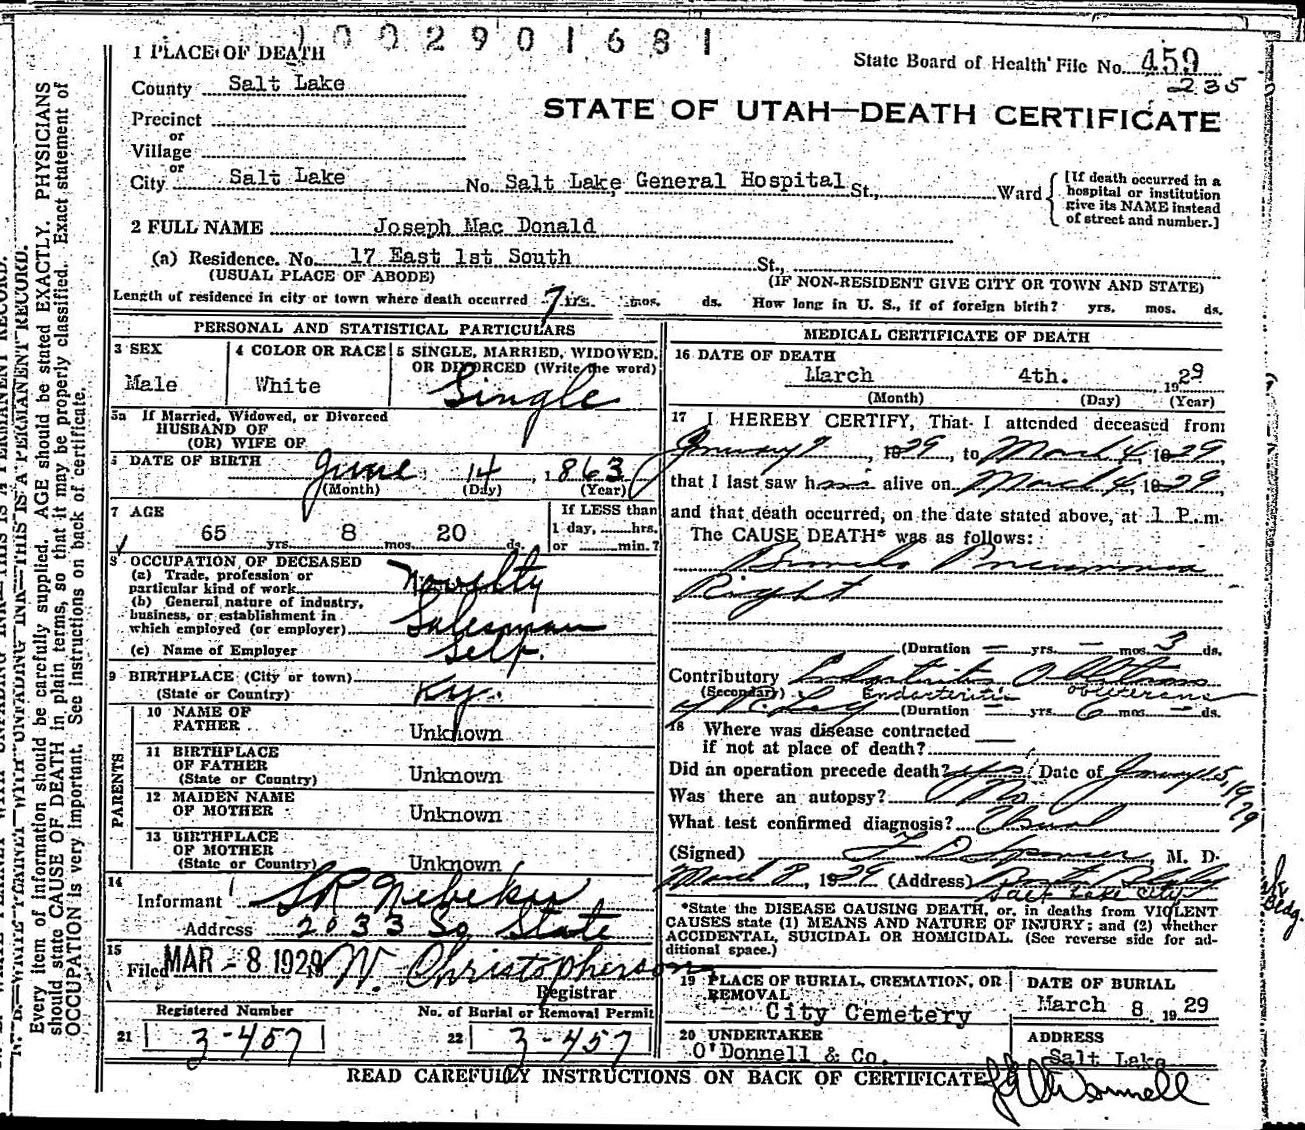 1002901681
1 PLACE OF DEATH
State Board of Health File No. 459
235
County Salt Lake
STATE OF UTAH—DEATH CERTIFICATE
Precinct
or
Village
or
City Salt Lake No. Salt Lake General Hospital St., Ward
[If death occurred in a
hospital or institution
give its NAME instead
of street and number.]
2 FULL NAME Joseph Mac Donald
(a) Residence. No. 17 East 1st South St.,
(USUAL PLACE OF ABODE) (IF NON-RESIDENT GIVE CITY OR TOWN AND STATE)
Length of residence in city or town where death occurred 7 yrs. mos. ds. How long in U. S., if of foreign birth? yrs. mos. ds.
PERSONAL AND STATISTICAL PARTICULARS
3 SEX
Male
4 COLOR OR RACE
White
5 SINGLE, MARRIED, WIDOWED,
OR DIVORCED (Write the word)
Single
5a If Married, Widowed, or Divorced
HUSBAND OF
(OR) WIFE OF
DATE OF BIRTH June 14, 1863
(Month) (Day) (Year)
7 AGE
65 yrs. 8 mos. 20 ds.
If LESS than
1 day, hrs.
or min.?
8 OCCUPATION OF DECEASED
(a) Trade, profession or
particular kind of work Novelty
(b) General nature of industry,
business, or establishment in
which employed (or employer) Salesman
(c) Name of Employer Self.
9 BIRTHPLACE (City or town)
(State or Country) Ky.
PARENTS
10 NAME OF
FATHER Unknown
11 BIRTHPLACE
OF FATHER
(State or Country) Unknown
12 MAIDEN NAME
OF MOTHER Unknown
13 BIRTHPLACE
OF MOTHER
(State or Country) Unknown
14
Informant S R Nebeker
Address 2033 So State
15
Filed MAR - 8 1929 W. Christopherson
Registrar
Registered Number
21 3-457
No. of Burial or Removal Permit
22 3-457
MEDICAL CERTIFICATE OF DEATH
16 DATE OF DEATH
March 4th. 1929
(Month) (Day) (Year)
17 I HEREBY CERTIFY, That I attended deceased from
January, 1929, to March 4, 1929,
that I last saw him alive on March 4, 1929,
and that death occurred, on the date stated above, at 1 P.m.
The CAUSE DEATH* was as follows:
Broncho Pneumonia
Right
(Duration — yrs. — mos. 3 ds.
Contributory Endarteritis Obliterans
(Secondary) Endarteritis obliterans
of R. Leg (Duration — yrs. 6 mos. — ds.
18 Where was disease contracted
if not at place of death?
Did an operation precede death? yes Date of January 15, 1929
Was there an autopsy? No.
What test confirmed diagnosis?
(Signed) Spencer, M. D.
March 8, 1929 (Address)
Salt Lake City
Bldg.
*State the DISEASE CAUSING DEATH, or, in deaths from VIOLENT
CAUSES state (1) MEANS AND NATURE OF INJURY; and (2) whether
ACCIDENTAL, SUICIDAL OR HOMICIDAL. (See reverse side for ad-
ditional space.)
19 PLACE OF BURIAL, CREMATION, OR
REMOVAL
City Cemetery
DATE OF BURIAL
March 8 1929
20 UNDERTAKER
O'Donnell & Co.
ADDRESS
Salt Lake
O'Donnell
READ CAREFULLY INSTRUCTIONS ON BACK OF CERTIFICATE
N. B.—WRITE PLAINLY WITH UNFADING INK—THIS IS A PERMANENT RECORD.
Every item of information should be carefully supplied. AGE should be stated EXACTLY. PHYSICIANS
should state CAUSE OF DEATH in plain terms, so that it may be properly classified. Exact statement of
OCCUPATION is very important. See instructions on back of certificate.